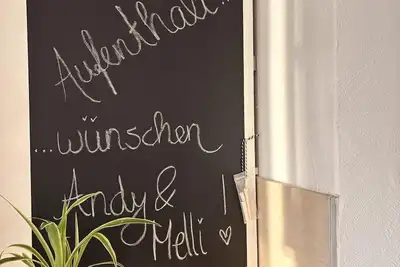 Aufenthalt...
...wünschen
Andy &
Melli! ♡